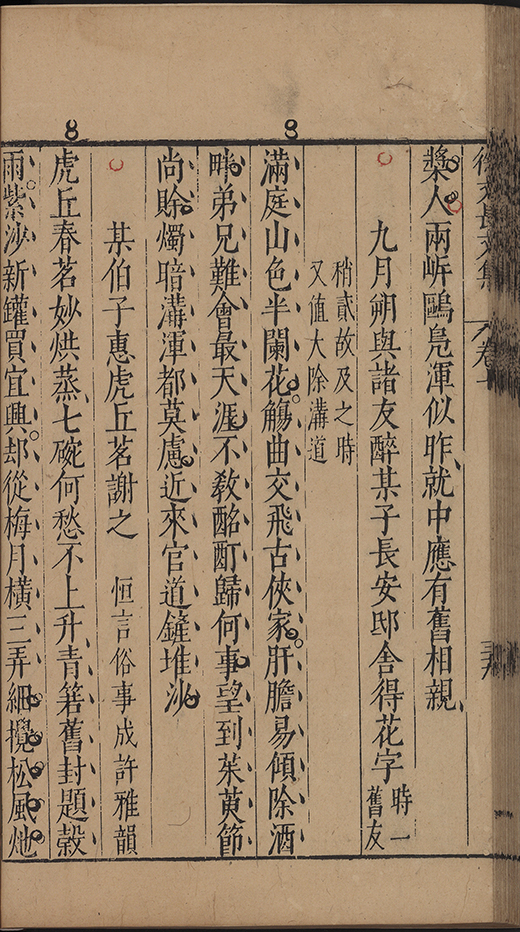 徐文長文集 卷七
槳人兩岍鷗鳧渾似昨就中應有舊相親
九月朔與諸友醉某子長安邸舍得花字 時一
舊友
稍貳故及之時
又值大除溝道
滿庭山色半闌花觴曲交飛古俠家肝膽易傾除酒
畔弟兄難會最天涯不敎酩酊歸何事望到茱萸節
尚賖燭暗溝渾都莫慮近來官道鏟堆沙
某伯子惠虎丘茗謝之 恒言俗事成許雅韻
虎丘春茗妙烘蒸七碗何愁不上升青箬舊封題榖
雨紫沙新罐買宜興却從梅月橫三弄細攪松風灺